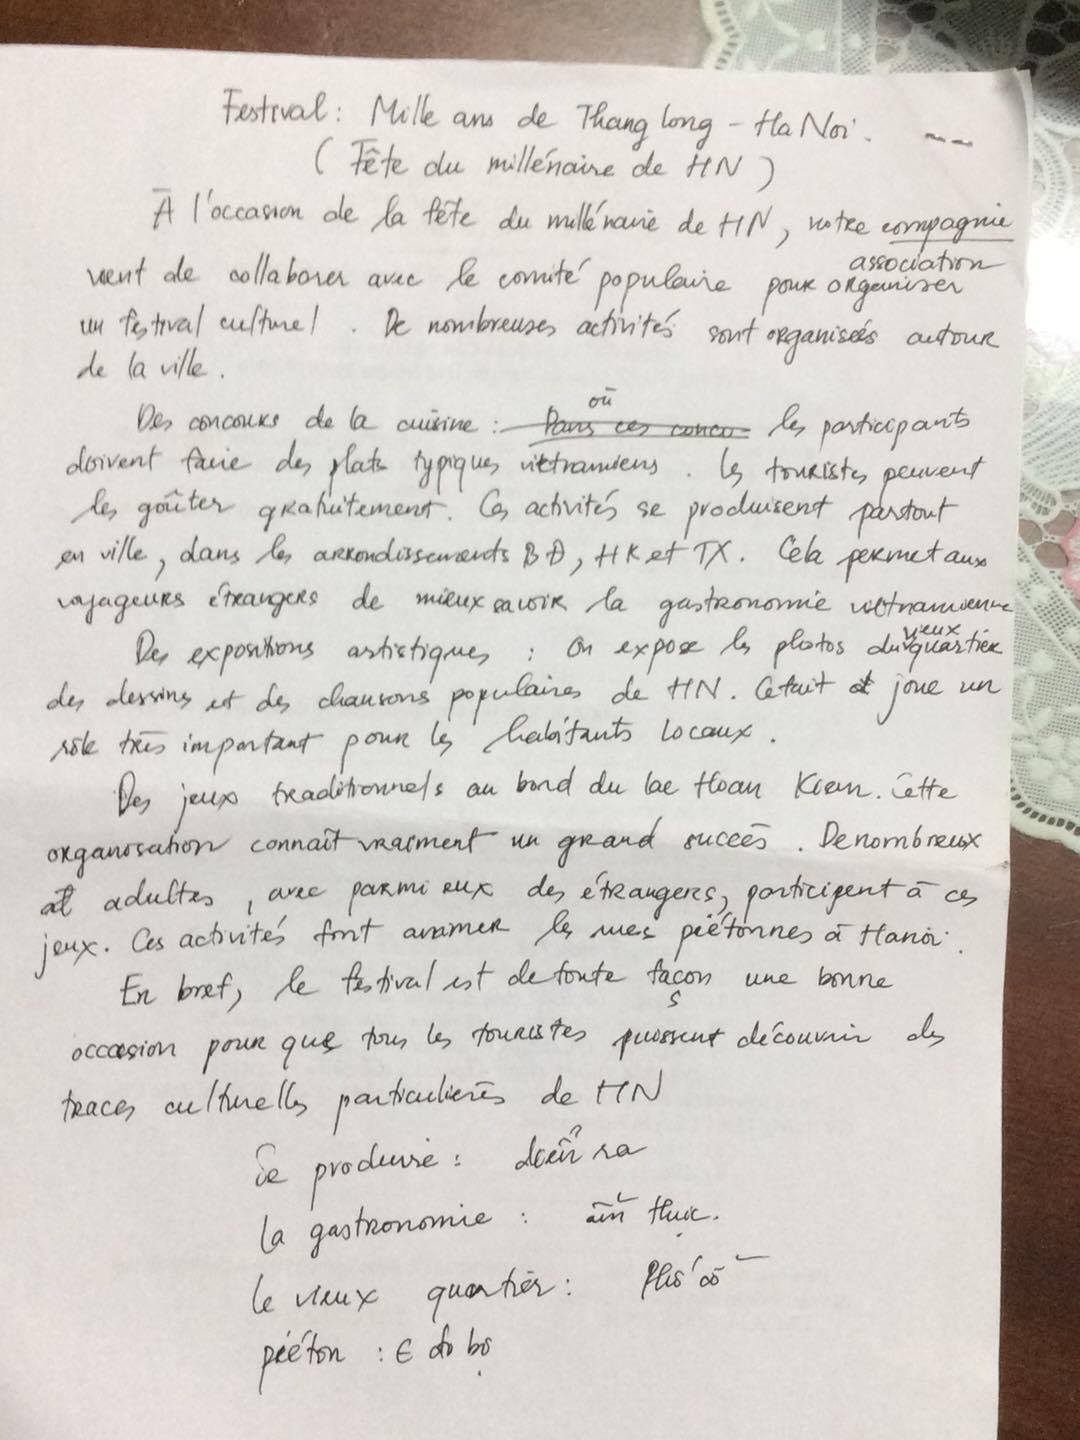 Festival : Mille ans de Thang long - Ha Noi.
( Fête du millénaire de HN )
À l'occasion de la fête du millénaire de HN, notre compagnie
association
vient de collaborer avec le comité populaire pour organiser
un festival culturel. De nombreuses activités sont organisées autour
de la ville.
Des concours de la cuisine : où les participants
doivent faire des plats typiques vietnamiens. Les touristes peuvent
les goûter gratuitement. Ces activités se produisent partout
en ville, dans les arrondissements BĐ, HK et TX. Cela permet aux
voyageurs étrangers de mieux savoir la gastronomie vietnamienne
Des expositions artistiques : On expose les photos du vieux quartier
des dessins et des chansons populaires de HN. Cela joue un
rôle très important pour les habitants locaux.
Des jeux traditionnels au bord du lac Hoan Kiem. Cette
organisation connaît vraiment un grand succès. De nombreux
adultes, avec parmi eux des étrangers, participent à ces
jeux. Ces activités font animer les rues piétonnes à Hanoi.
En bref, le festival est de toute façon une bonne
occasion pour que tous les touristes puissent découvrir des
traces culturelles particulières de HN
Se produire : diễn ra
la gastronomie : ẩm thực.
le vieux quartier : Phố cổ
piéton : đi bộ